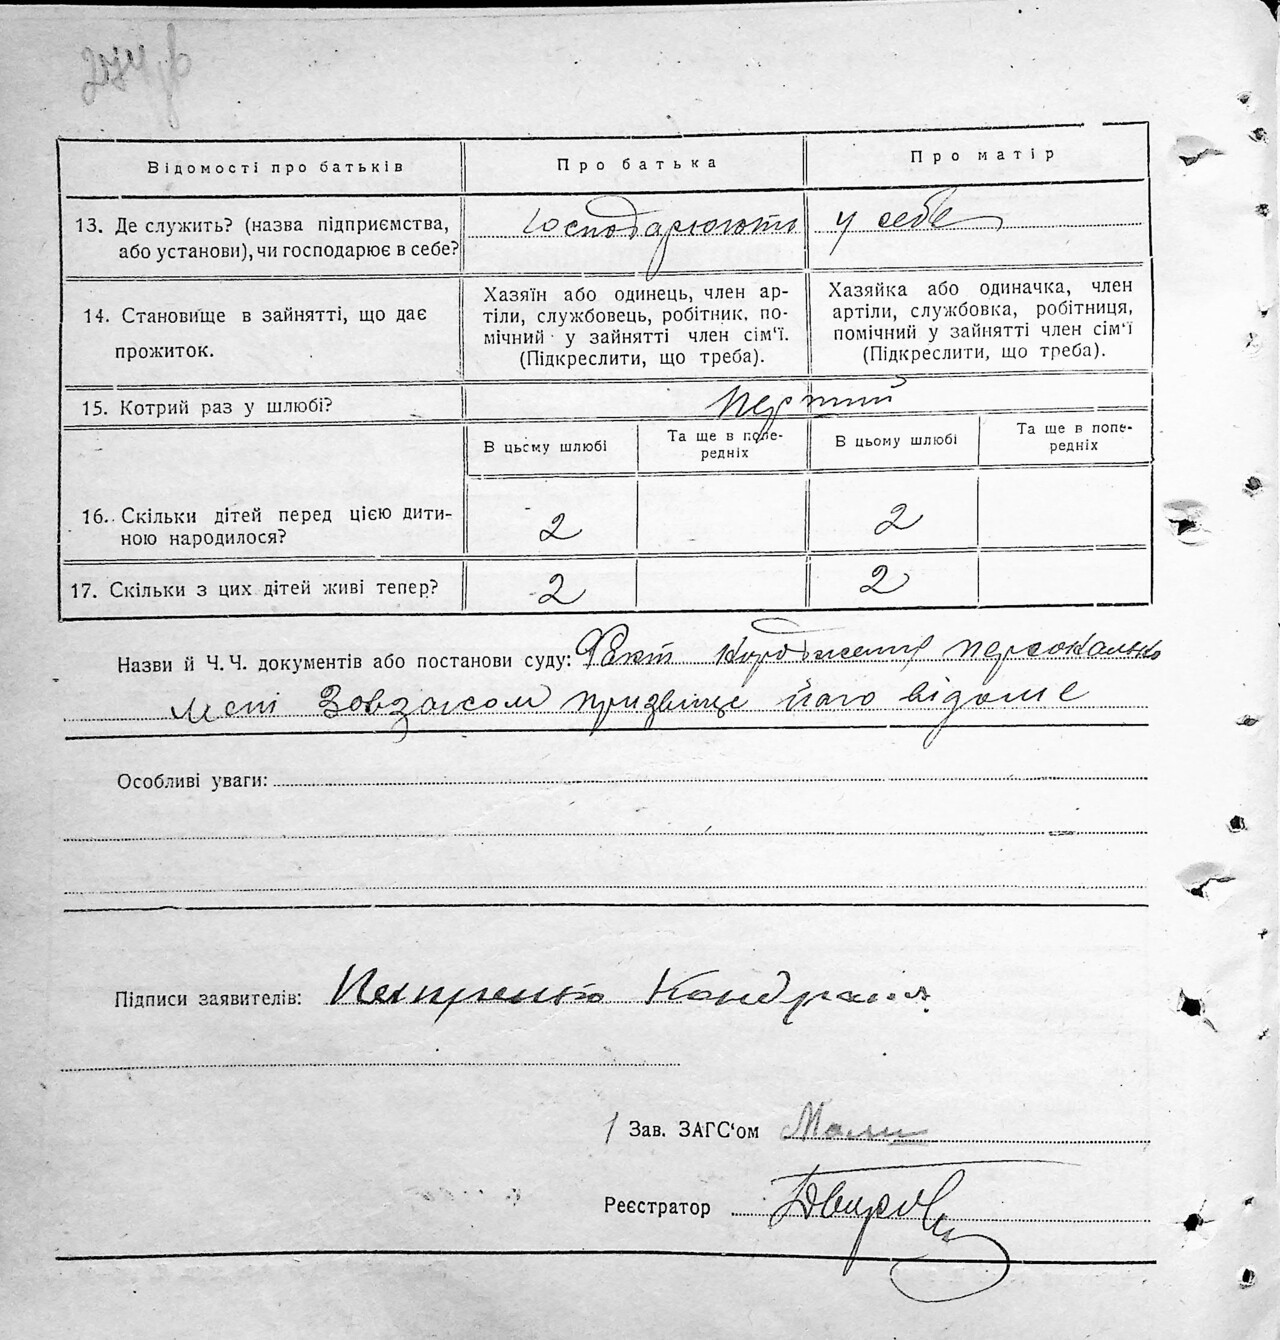 Відомості про батьків
Про батька
Про матір
13. Де служить? (назва підприємства,
або установи), чи господарює в себе?
господарюють у себе
14. Становище в зайнятті, що дає
прожиток.
Хазяїн або одинець, член ар-
тіли, службовець, робітник, по-
мічний у зайнятті член сім'ї.
(Підкреслити, що треба).
Хазяйка або одиначка, член
артіли, службовка, робітниця,
помічний у зайнятті член сім'ї
(Підкреслити, що треба).
15. Котрий раз у шлюбі?
перший
В цьому шлюбі
Та ще в попе-
редніх
В цьому шлюбі
Та ще в попе-
редніх
16. Скільки дітей перед цією дити-
ною народилося?
2
2
17. Скільки з цих дітей живі тепер?
2
2
Назви й Ч.Ч. документів або постанови суду: Факт народження персонально
мені Завзагсом призвіще його відоме
Особливі уваги:
Підписи заявителів:
Зав. ЗАГС'ом
Реєстратор